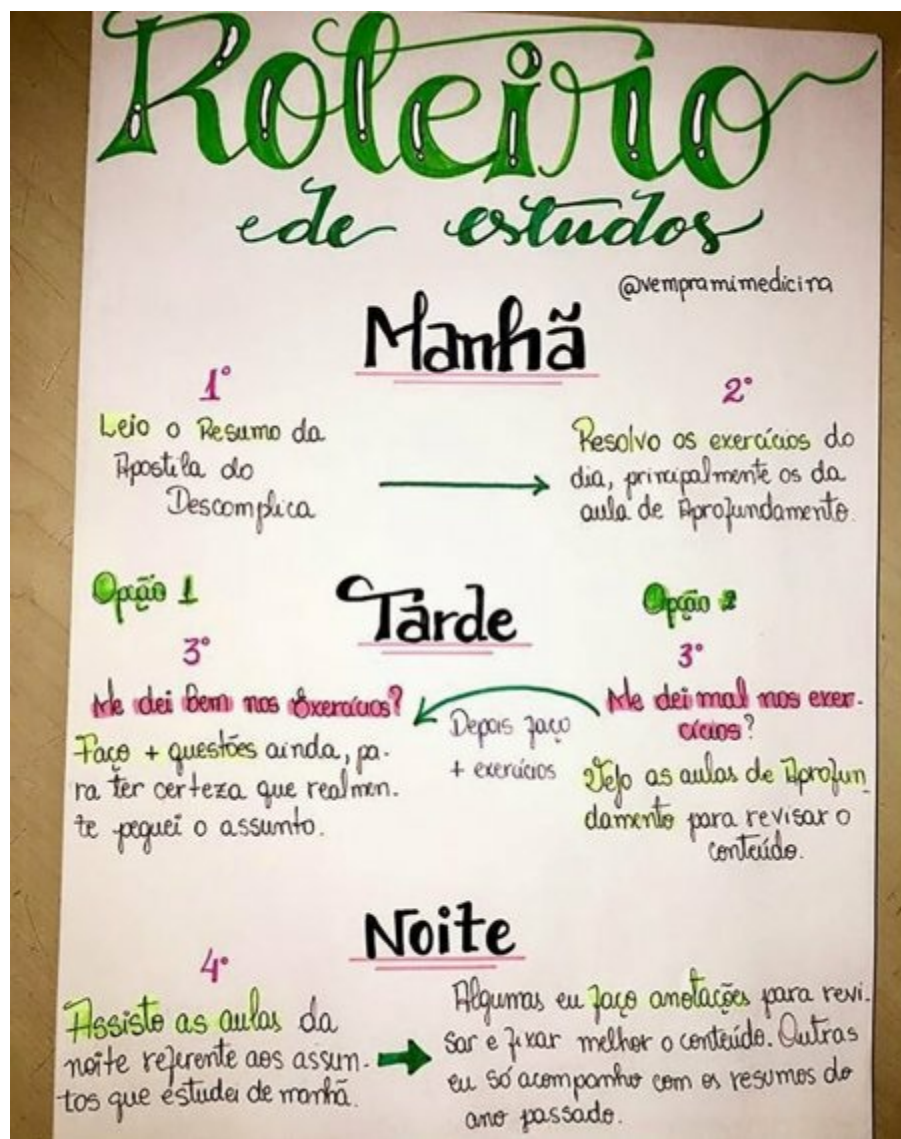 Roteiro
de estudos
@vempramimedicina
Manhã
1°
Leio o Resumo da
Apostila do
Descomplica
2°
Resolvo os exercícios do
dia, principalmente os da
aula de Aprofundamento.
Tarde
Opção 1
3°
Me dei Bem nos Exercícios?
Faço + questões ainda, pa-
ra ter certeza que realmen-
te peguei o assunto.
Depois faço
+ exercícios
Opção 2
3°
Me dei mal nos exer-
cícios?
Vejo as aulas de Aprofun
damento para revisar o
conteúdo.
Noite
4°
Assisto as aulas da
noite referente aos assun-
tos que estudei de manhã.
Algumas eu faço anotações para revi-
sar e fixar melhor o conteúdo. Outras
eu só acompanho com os resumos do
ano passado.